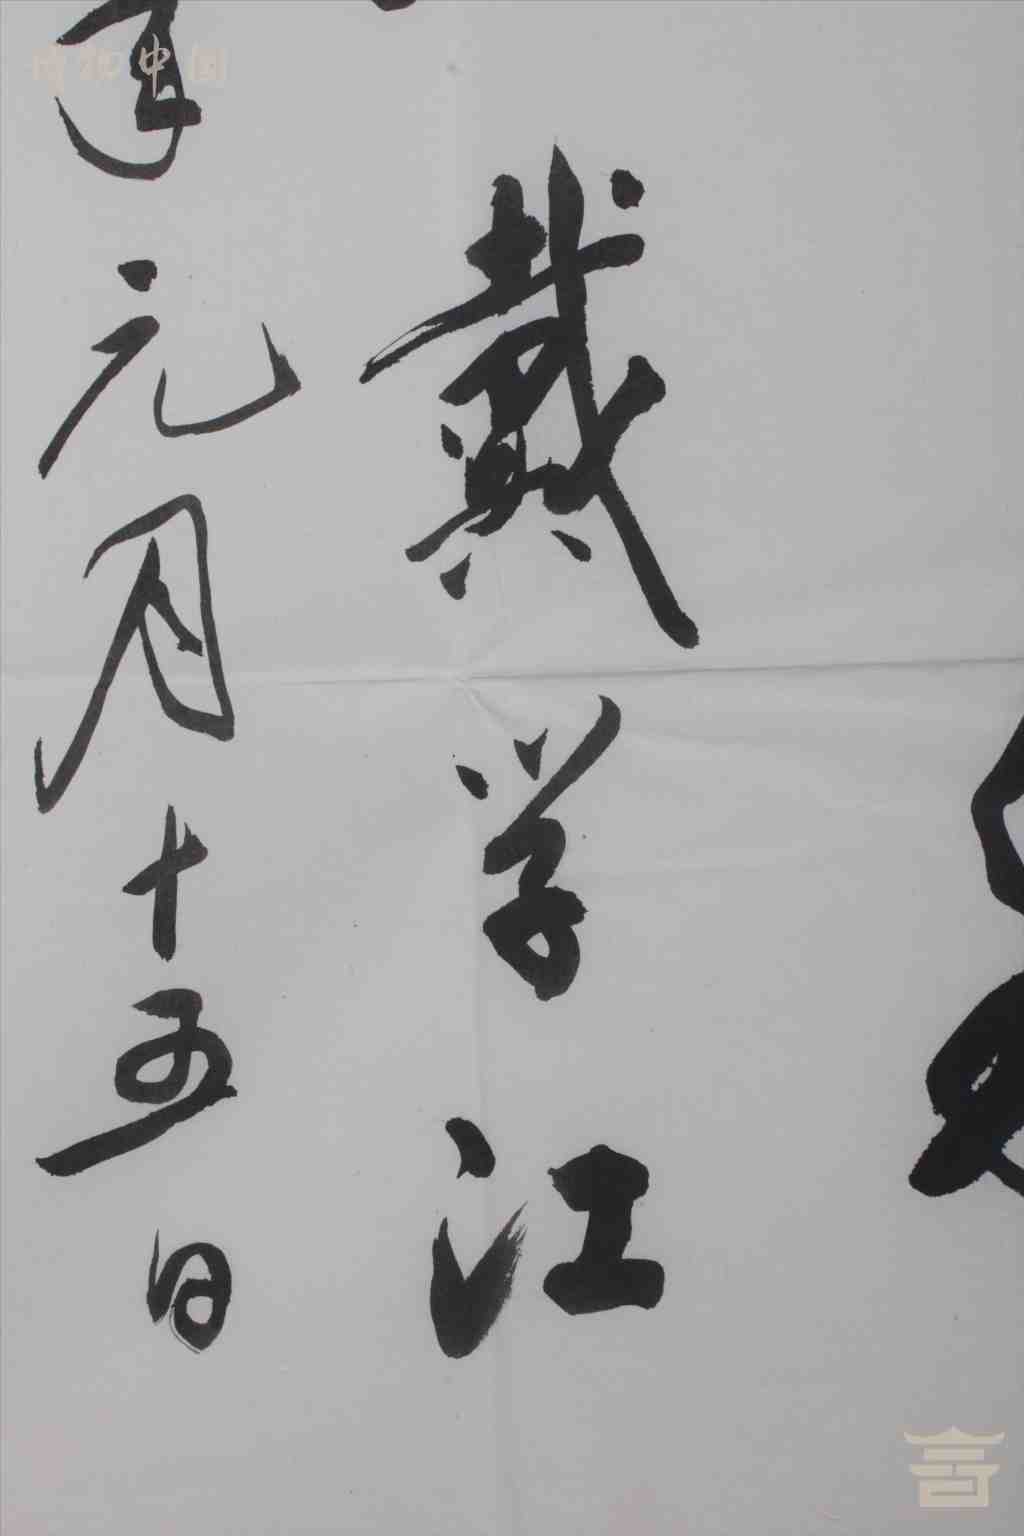 戴学江
元月十五日
博物中国